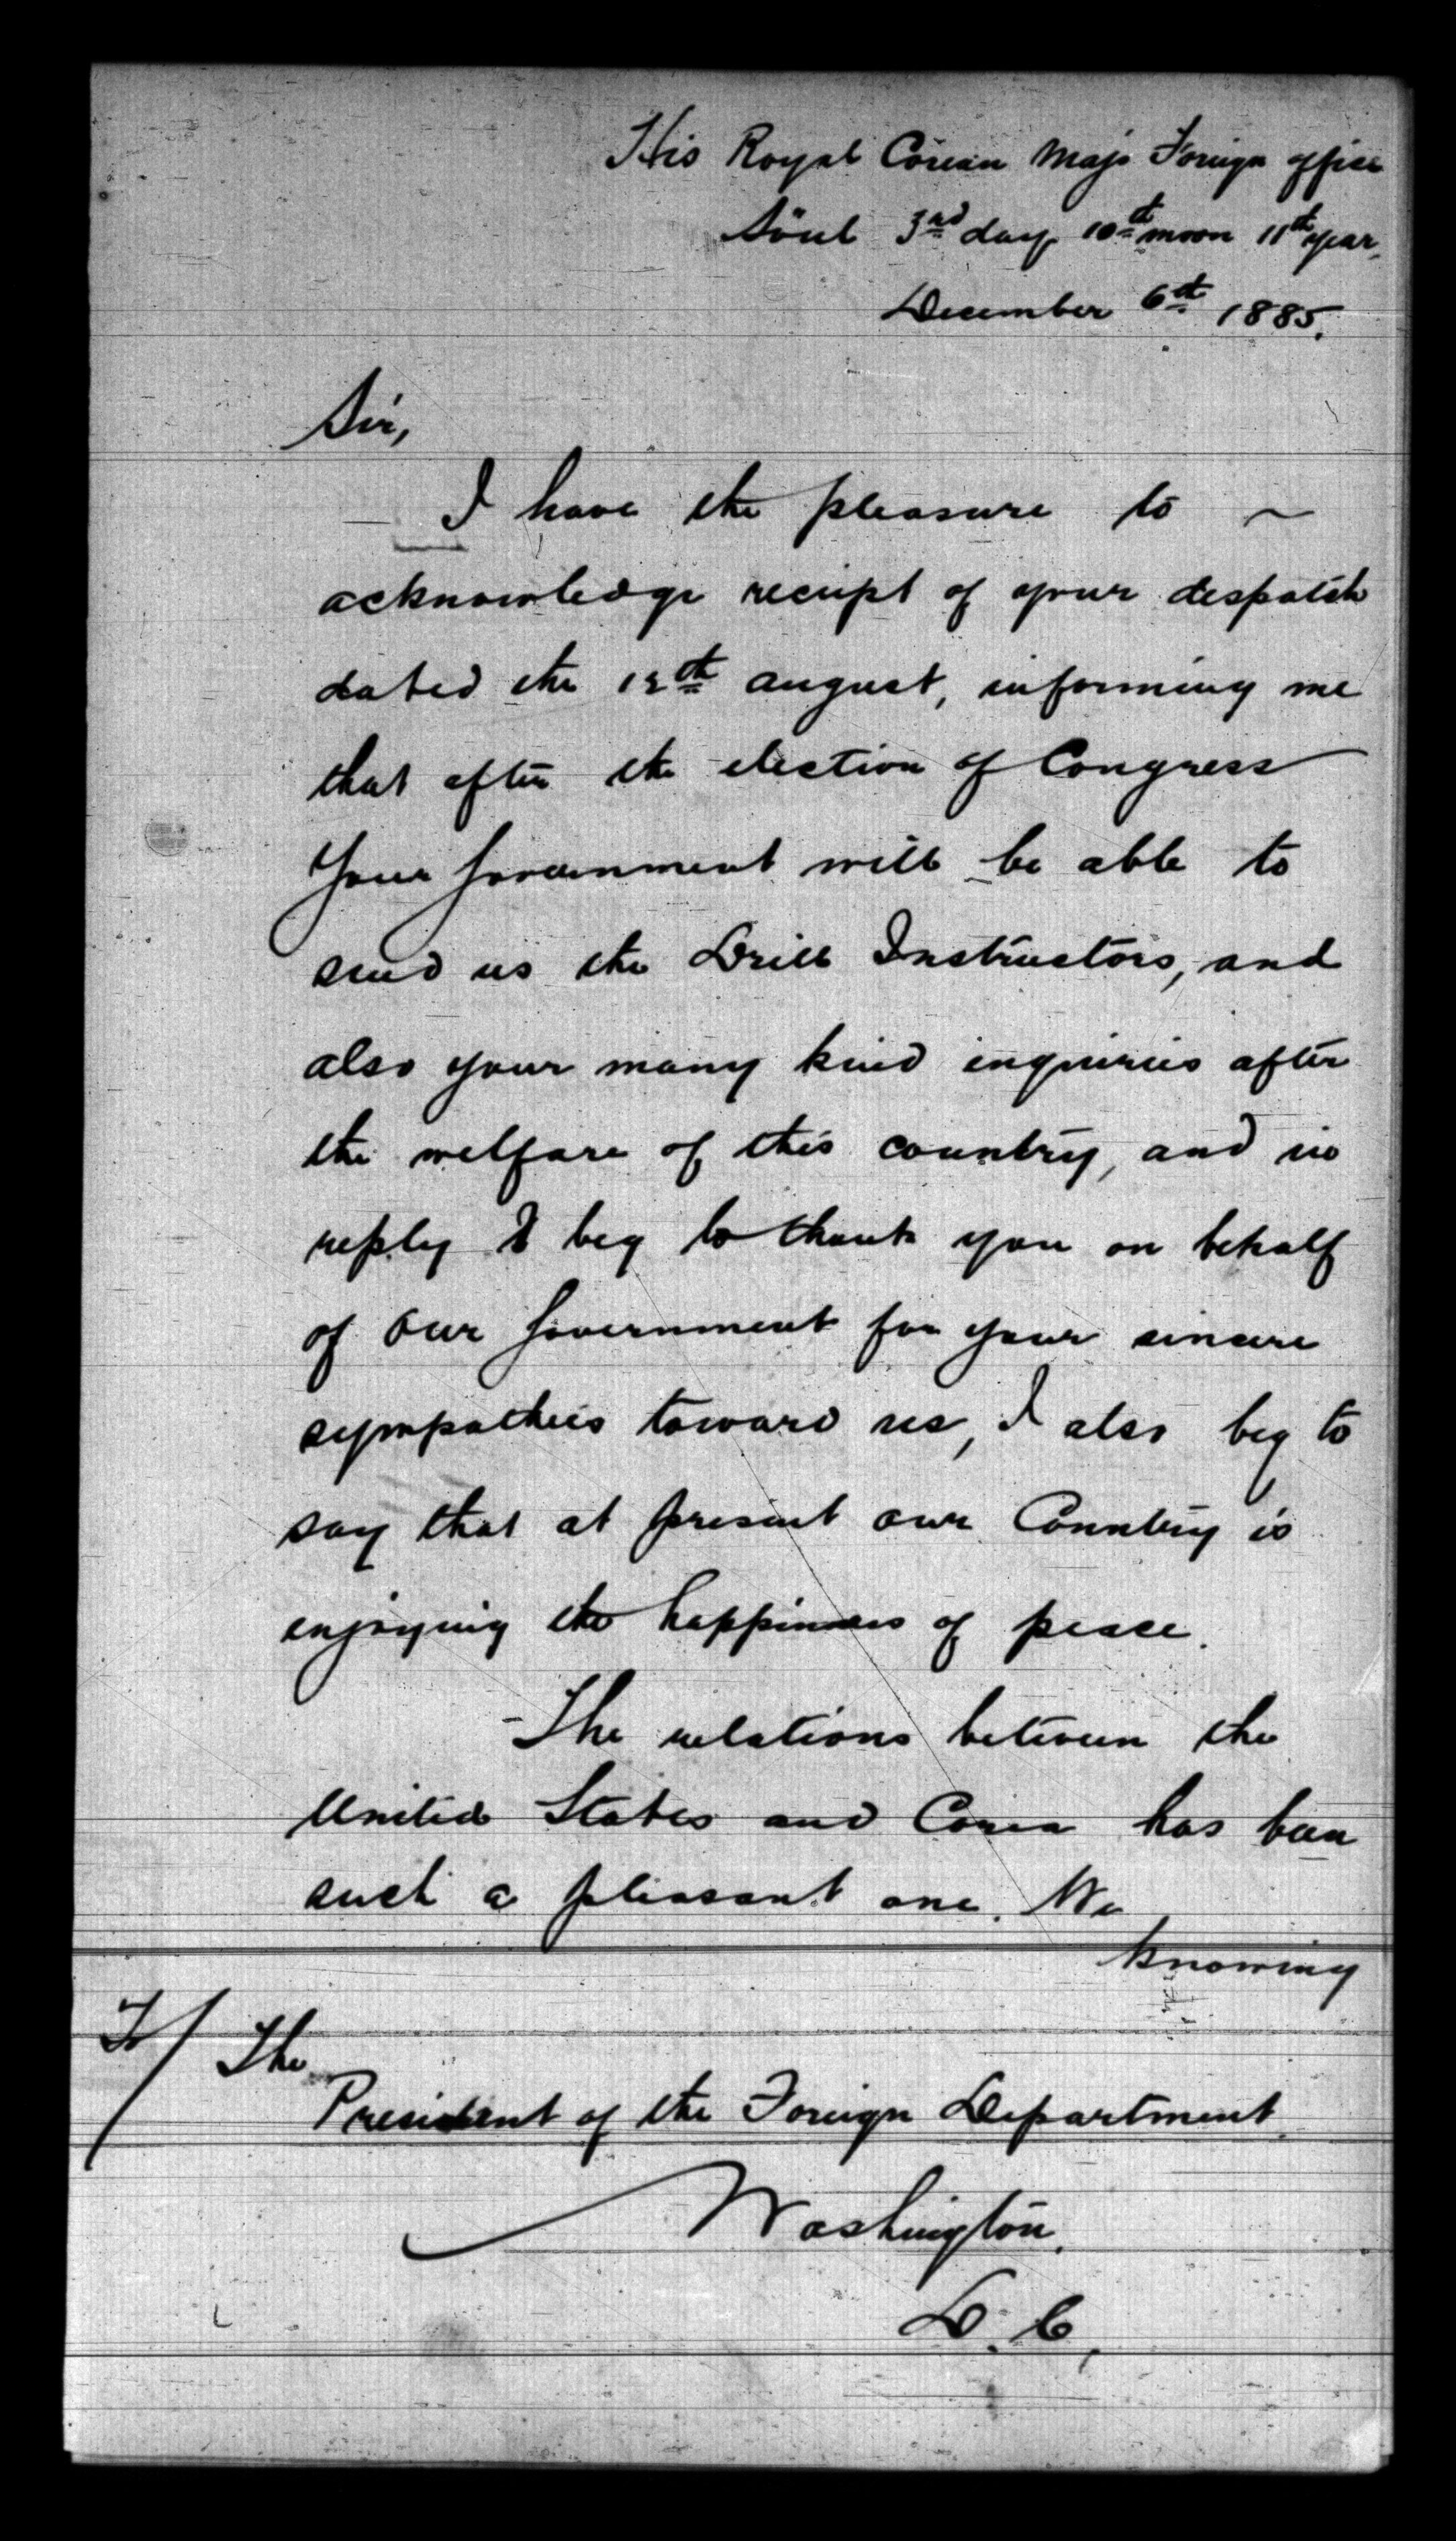 His Royal Corean Maj's Foreign office
Söul 3rd day 10th moon 11th year,
December 6th 1885.
Sir,
I have the pleasure to ~
acknowledge receipt of your despatch
dated the 12th august, informing me
that after the election of Congress
Your Government will be able to
send us the Drill Instructors, and
also your many kind inquiries after
the welfare of this country, and in
reply I beg to thank you on behalf
of our Government for your sincere
sympathies toward us, I also beg to
say that at present our Country is
enjoying the happiness of peace.
The relations between the
United States and Corea has been
such a pleasant one. We
knowing
To/ The
President of the Foreign Department.
Washington.
D. C,